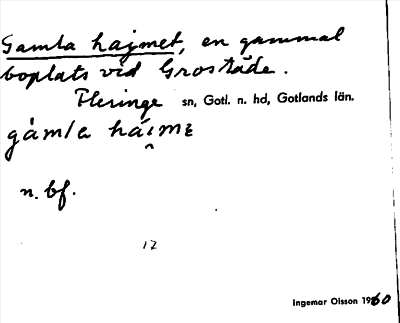 Gamla hajmet, en gammal
boplats vid Grostäde.
Fleringe sn, Gotl. n. hd, Gotlands län.
n. bf.
12
Ingemar Olsson 1960